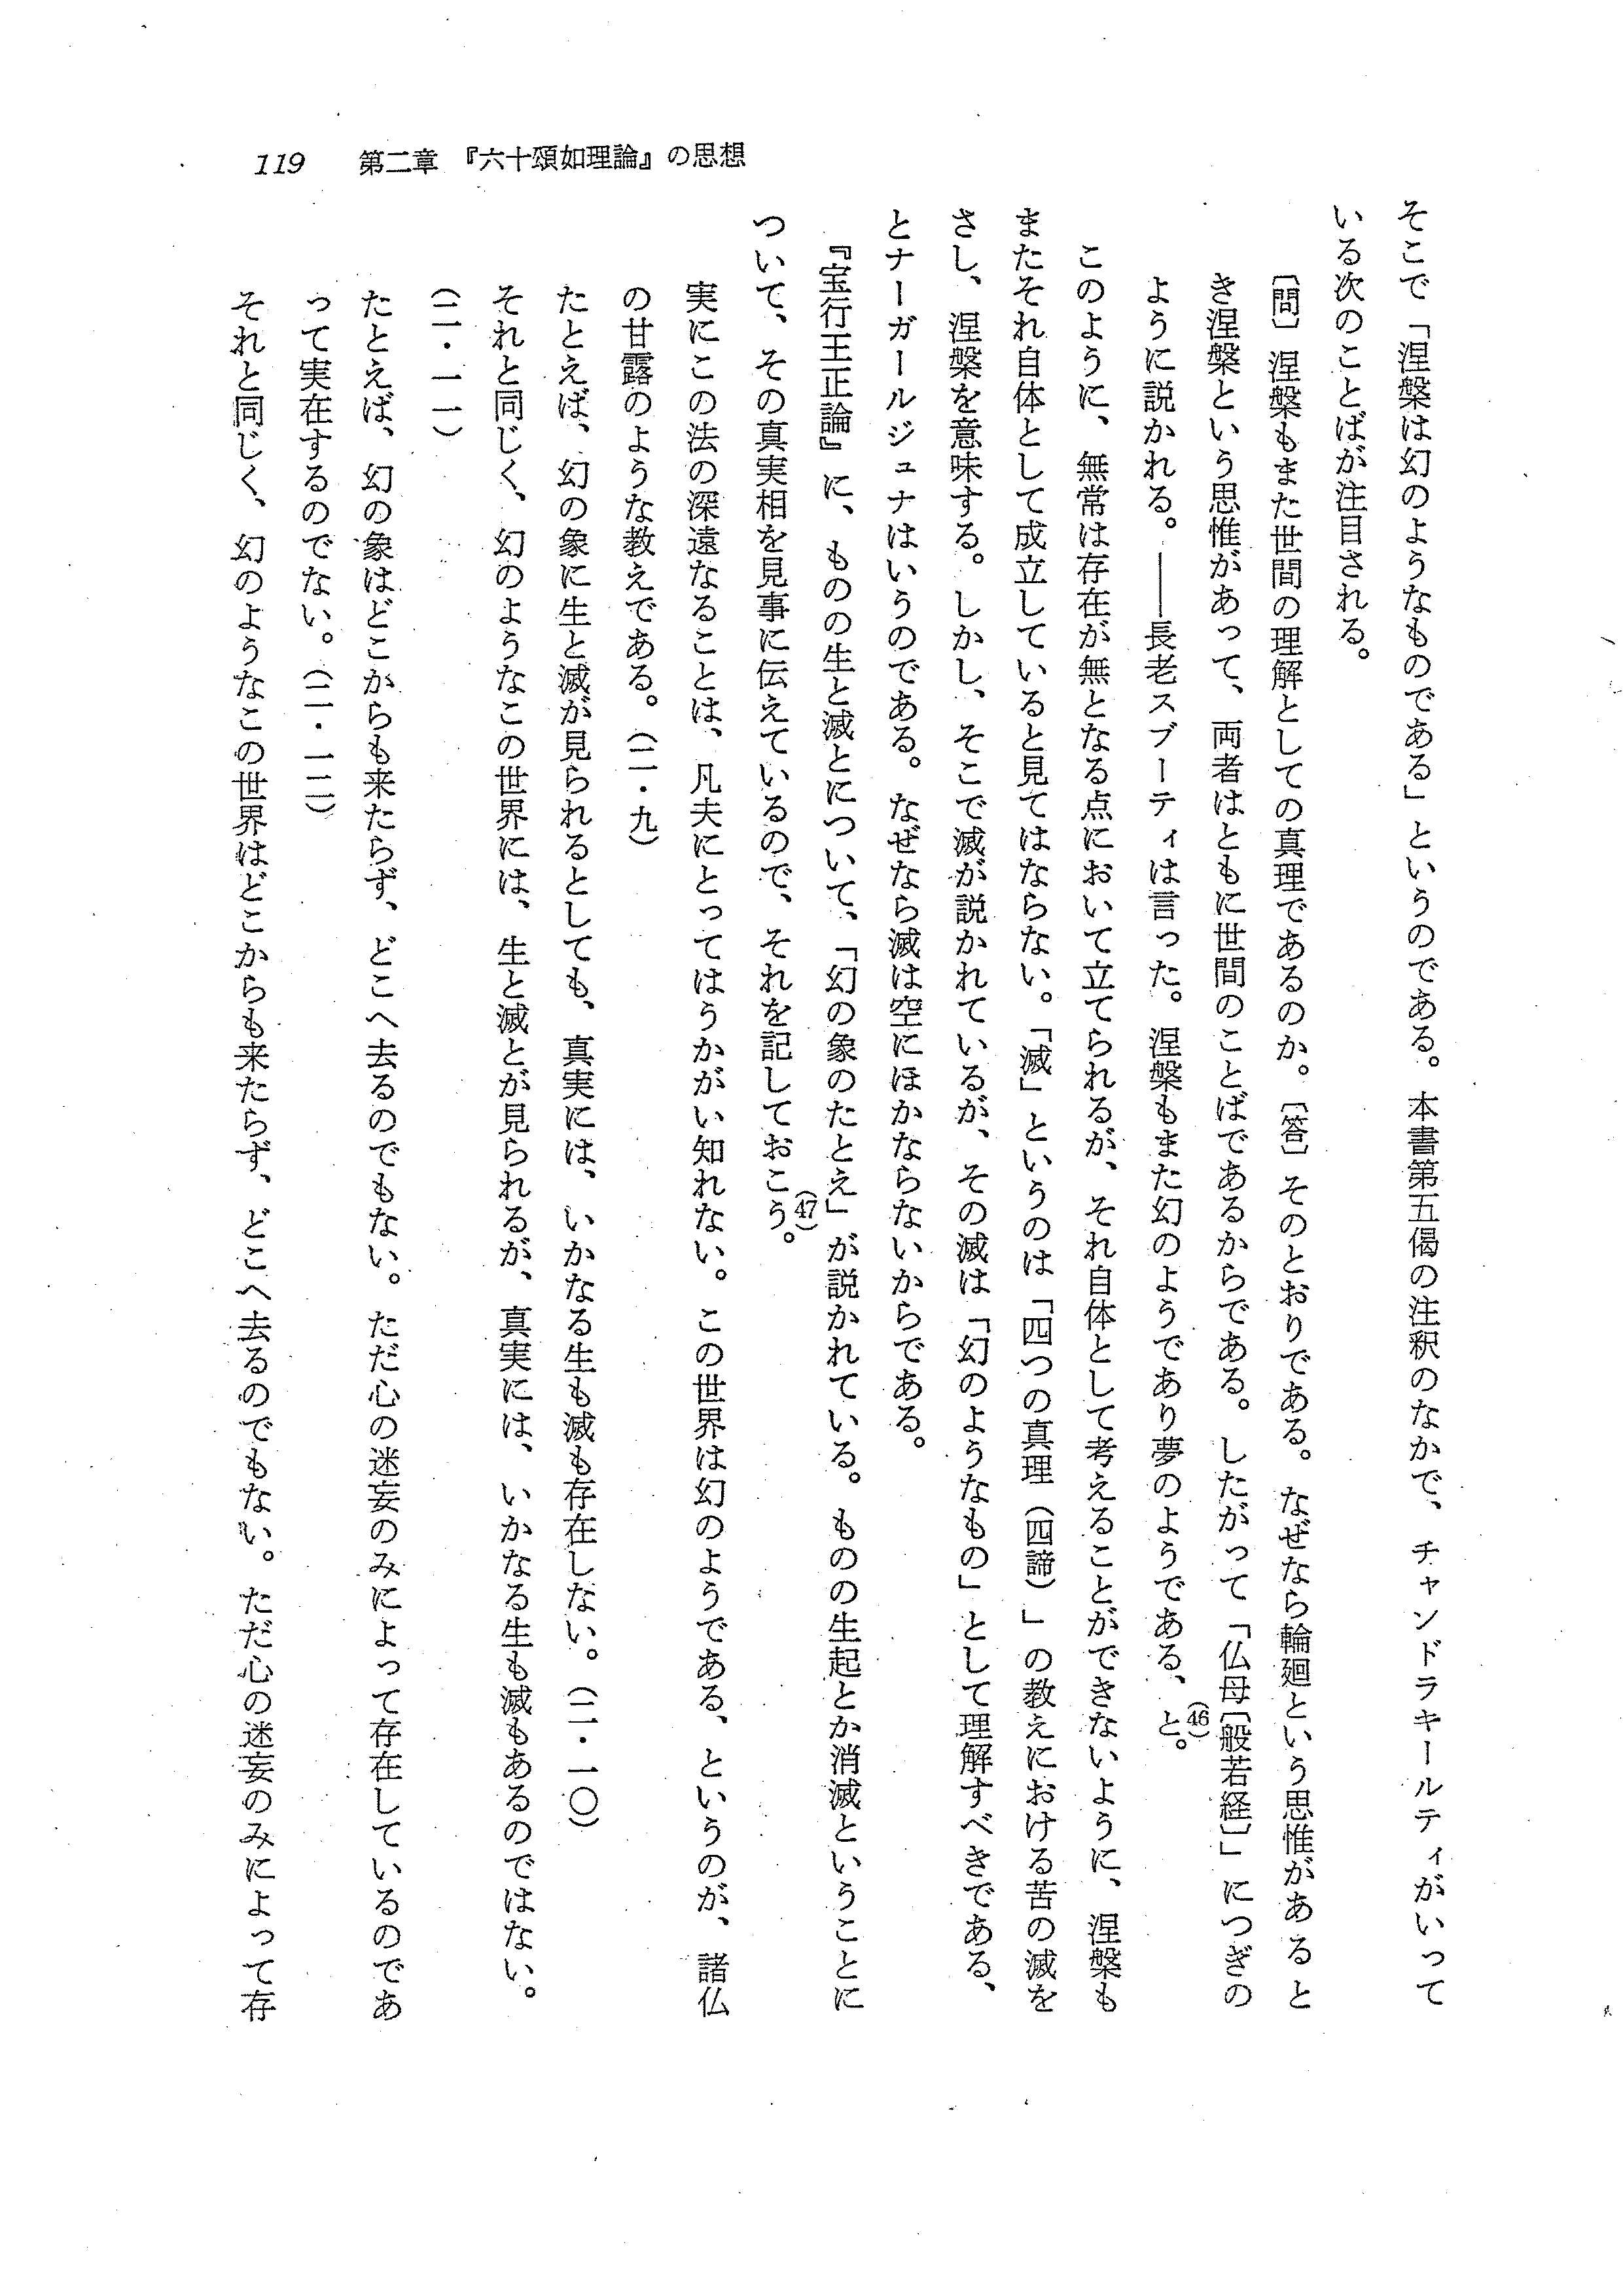 119　第二章　『六十頌如理論』の思想
そこで「涅槃は幻のようなものである」というのである。本書第五偈の注釈のなかで、チャンドラキールティがいって
いる次のことばが注目される。
〔問〕涅槃もまた世間の理解としての真理であるのか。〔答〕そのとおりである。なぜなら輪廻という思惟があると
き涅槃という思惟があって、両者はともに世間のことばであるからである。したがって「仏母〔般若経〕」につぎの
ように説かれる。――長老スブーティは言った。涅槃もまた幻のようであり夢のようである、と。(46)
このように、無常は存在が無となる点において立てられるが、それ自体として考えることができないように、涅槃も
またそれ自体として成立していると見てはならない。「滅」というのは「四つの真理（四諦）」の教えにおける苦の滅を
さし、涅槃を意味する。しかし、そこで滅が説かれているが、その滅は「幻のようなもの」として理解すべきである、
とナーガールジュナはいうのである。なぜなら滅は空にほかならないからである。
『宝行王正論』に、ものの生と滅とについて、「幻の象のたとえ」が説かれている。ものの生起とか消滅ということに
ついて、その真実相を見事に伝えているので、それを記しておこう。(47)
実にこの法の深遠なることは、凡夫にとってはうかがい知れない。この世界は幻のようである、というのが、諸仏
の甘露のような教えである。（二・九）
たとえば、幻の象に生と滅が見られるとしても、真実には、いかなる生も滅も存在しない。（二・一〇）
それと同じく、幻のようなこの世界には、生と滅とが見られるが、真実には、いかなる生も滅もあるのではない。
（二・一一）
たとえば、幻の象はどこからも来たらず、どこへ去るのでもない。ただ心の迷妄のみによって存在しているのであ
って実在するのでない。（二・一二）
それと同じく、幻のようなこの世界はどこからも来たらず、どこへ去るのでもない。ただ心の迷妄のみによって存